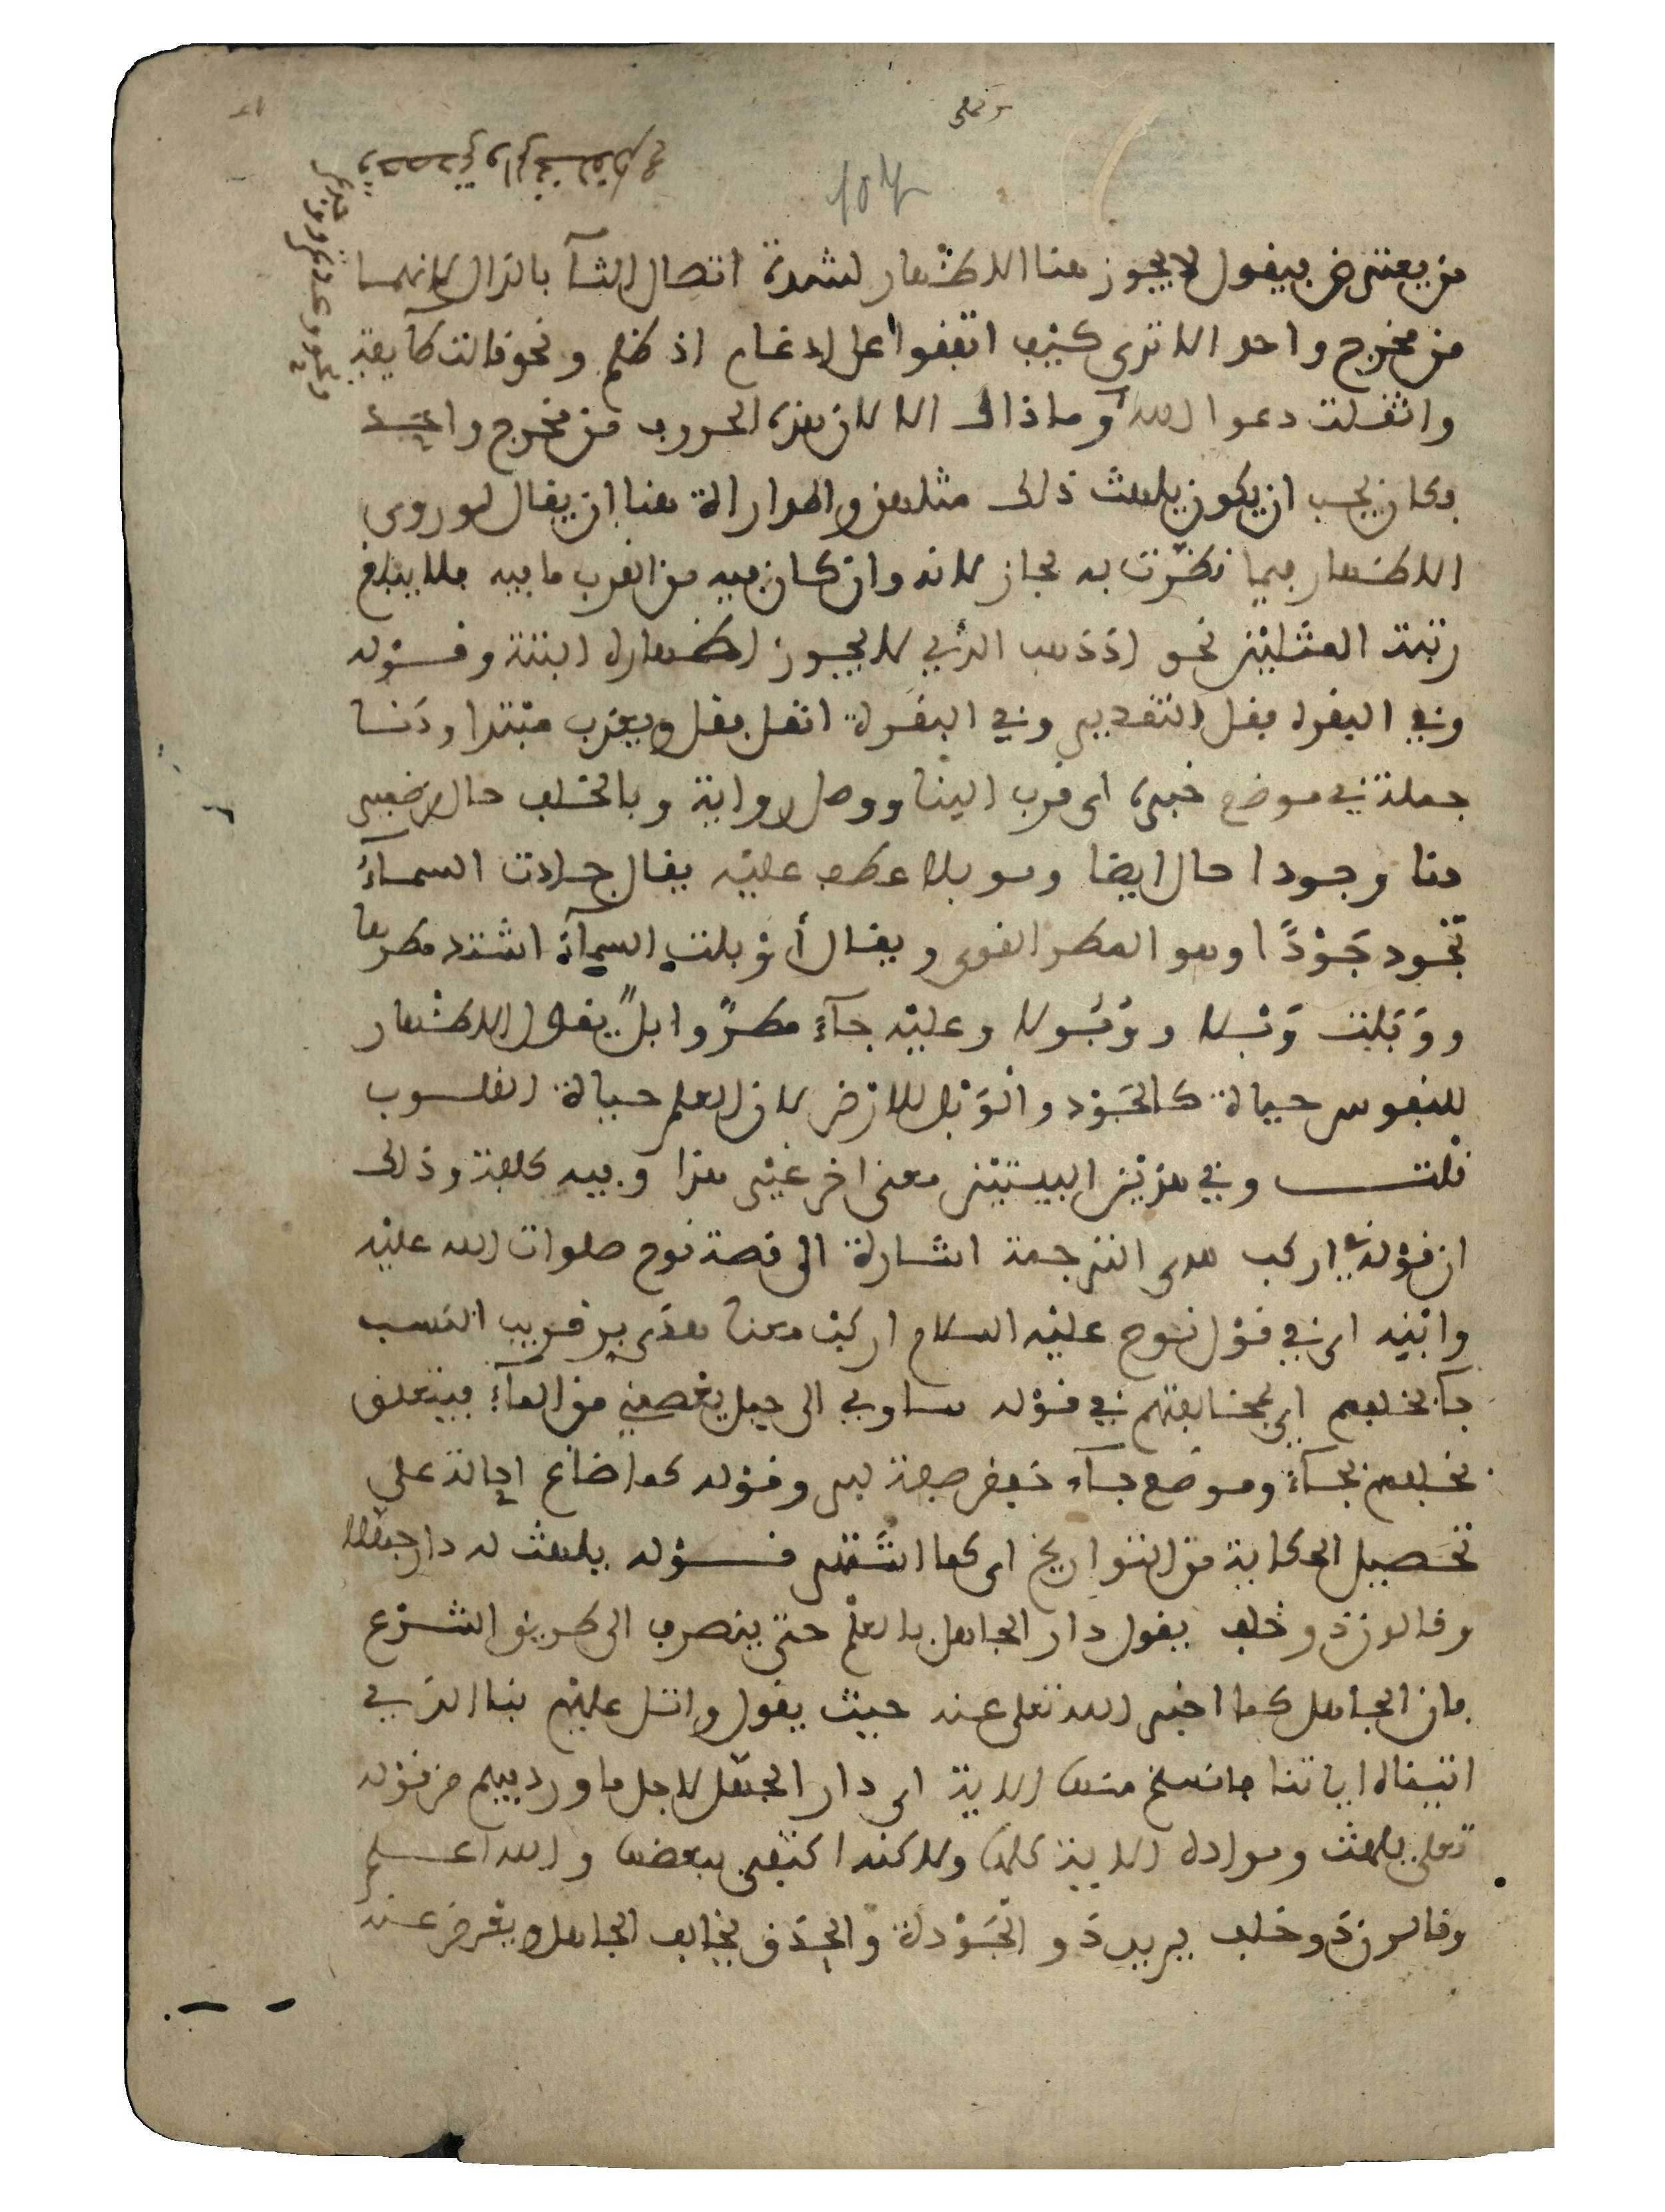 من يعترض فيقول لا يجوز هنا الاظهار لشدة اتصال الثآ بالذال لانهما
من مخرج واحد الا ترى كيف اتفقوا على ادغام اذ ظلم ونحو قالت طآيفة
واثقلت دعوا الله وما ذاك الا لان هذه الحروف من مخرج واحد
فكان يجب ان يكون يلهث ذلك مثلهن والمداراة هنا ان يقال لو روى
الاظهار فيما نظرت به لجاز لانه وان كان فيه من القرب ما فيه فلا يبلغ
رتبة المثلين نحو اذ ذهب الذي لا يجوز اظهاره البتة وقوله
وفي البقرة فقل التقدير وفي البقرة انقل فقل ويعذب مبتدا ودنا
جملة في موضع خبره اى قرب الينا ووصل رواية وبالخلف حال من ضمير
دنا وجودا حال ايضا وموبلا عطف عليه يقال جادت السمآء
تجود جَوْدًا وهو المطر القوى ويقال أوْبلت السمآء اشتد مطرها
ووَبَلت وَبْلا ووُبُولا وعليه جآء مطرٌ وابلٌ يقول الاظهار
للنفوس حياة كالجَوْد والوَبْل للارض لان العلم حياة القلوب
قلت وفي هذين البيتين معنى اخر غير هذا وفيه كلفة وذلك
ان قوله في اركب هدى الترجمة اشارة الى قصة نوح صلوات الله عليه
وابنه اى في قول نوح عليه السلام اركب معنا هدى بر قريب النسب
جآ بخلفهم اى بمخالفتهم في قوله سـاوي الى جبل يعصمني من المآء فيتعلق
بخلفهم بجآء وموضع جآء خفض صفة لبر وقوله كما ضاع احالة على
تحصيل الحكاية من التواريخ اى كما اشتهر قوله يلهث له دار جهلا
وقالون ذو خلف يقول دار الجاهل بالعلم حتى ينصرف الى طريق الشرع
فان الجاهل كما اخبر الله تعلى عنه حيث يقول واتل عليهم نبا الذي
اتيناه اياتنا فانسلخ منها الاية اى دار الجهل لاجل ما ورد فيهم من قوله
تعلى يلهث ومراده الاية كلها ولاكنه اكتفى ببعضها والله اعلم
وقالون ذو خلف يريد ذو الجَوْدة والحِذق يخالف الجاهل ويعرض عنه